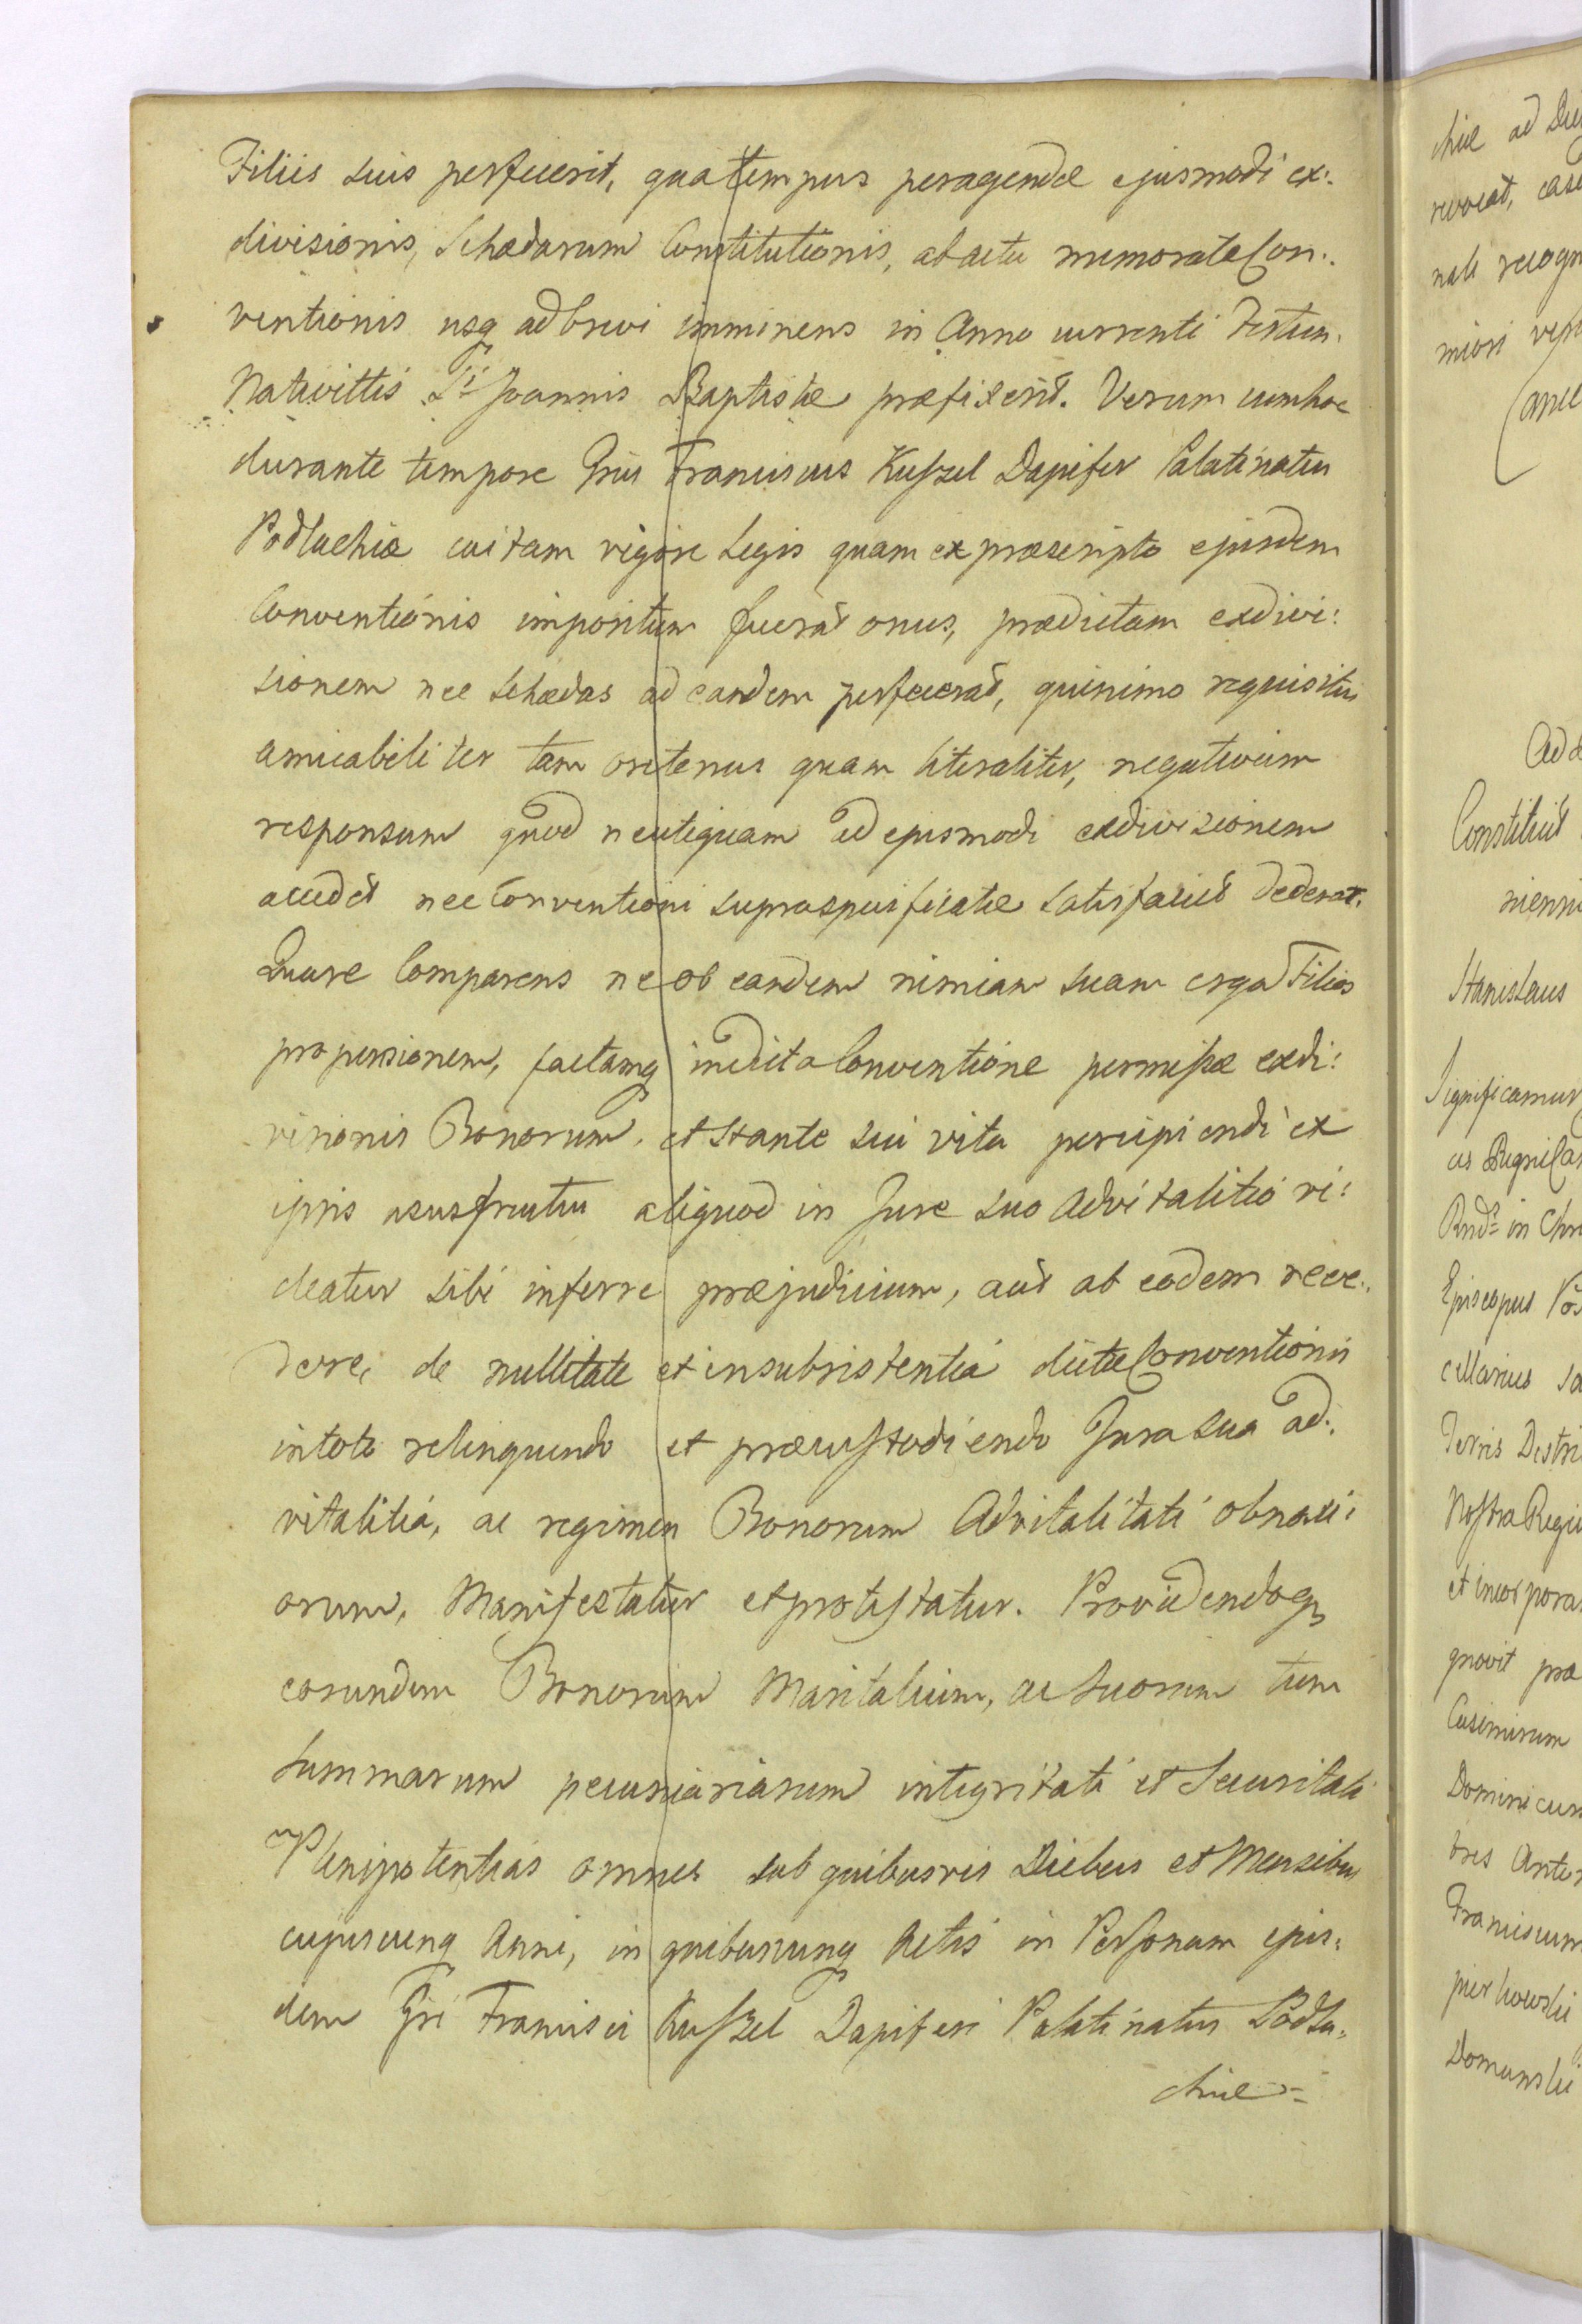 Filiis suis perfecerit, qua tempus peragendæ ejusmodi ex:
divisionis, Schædarum Constitutionis, ab actu memoratæ Con:
ventionis usq adbrevi imminens in Anno currenti Festum
Nativittis Sti Joannis Baptistæ præfixerit. Verum cumhoc
durante tempore Gsus Franciscus Kuſzel Dapifer Palatinatus
Podlachiæ cui tam vigore Legis quam ex præscripto ejusdem
Conventionis impositum fuerat onus, prædictam exdivi:
sionem nec Schædas ad eandem perfecerat, quinimo requisitus
amicabiliter tam oretenus quam literaliter, negativum
responsum quod neutiquam ad ejusmodi exdivisionem
accedet nec Conventioni supraspecificatæ satisfaciet dederat.
Quare Comparens ne ob eandem nimiam suam erga Filios
propensionem, factamq in dicta Conventione permiſsæ exdi:
visionis Bonorum, et stante sui vita percipiendi ex
ipsis ususfructu aliquod in Jure suo Advitalitio vi:
deatur sibi inferre præjudicium, aut ab eodem rece:
dere, de nullitate et insubsistentia dictæ Conventionis
intoto relinquendo et præcuſtodiendo Jura sua ad:
vitalitia, ac regimen Bonorum Advitalitati obnoxi:
orum, Manifestatur et proteſtatur. Providendoq
eorundem Bonorum Maritalium, ac suorum tum
summarum pecuniariarum integritati et Securitati
Plenipotentias omnes sub quibusvis Diebus et Mensibus
cujuscunq Anni, in quibuscunq Actis in Perſonam ejus:
dem Gsi Francisci Kuſzel Dapiferi Palatinatus Podla:
chiæ
chiæ ad
revocat,
nali
miori
Constituit
Stanislaus
Significamus
in
Episcopus
cellarius
Terris
Noſtra
gnovit præ
Casimirum
Dominicum
Franciscum
Domanski